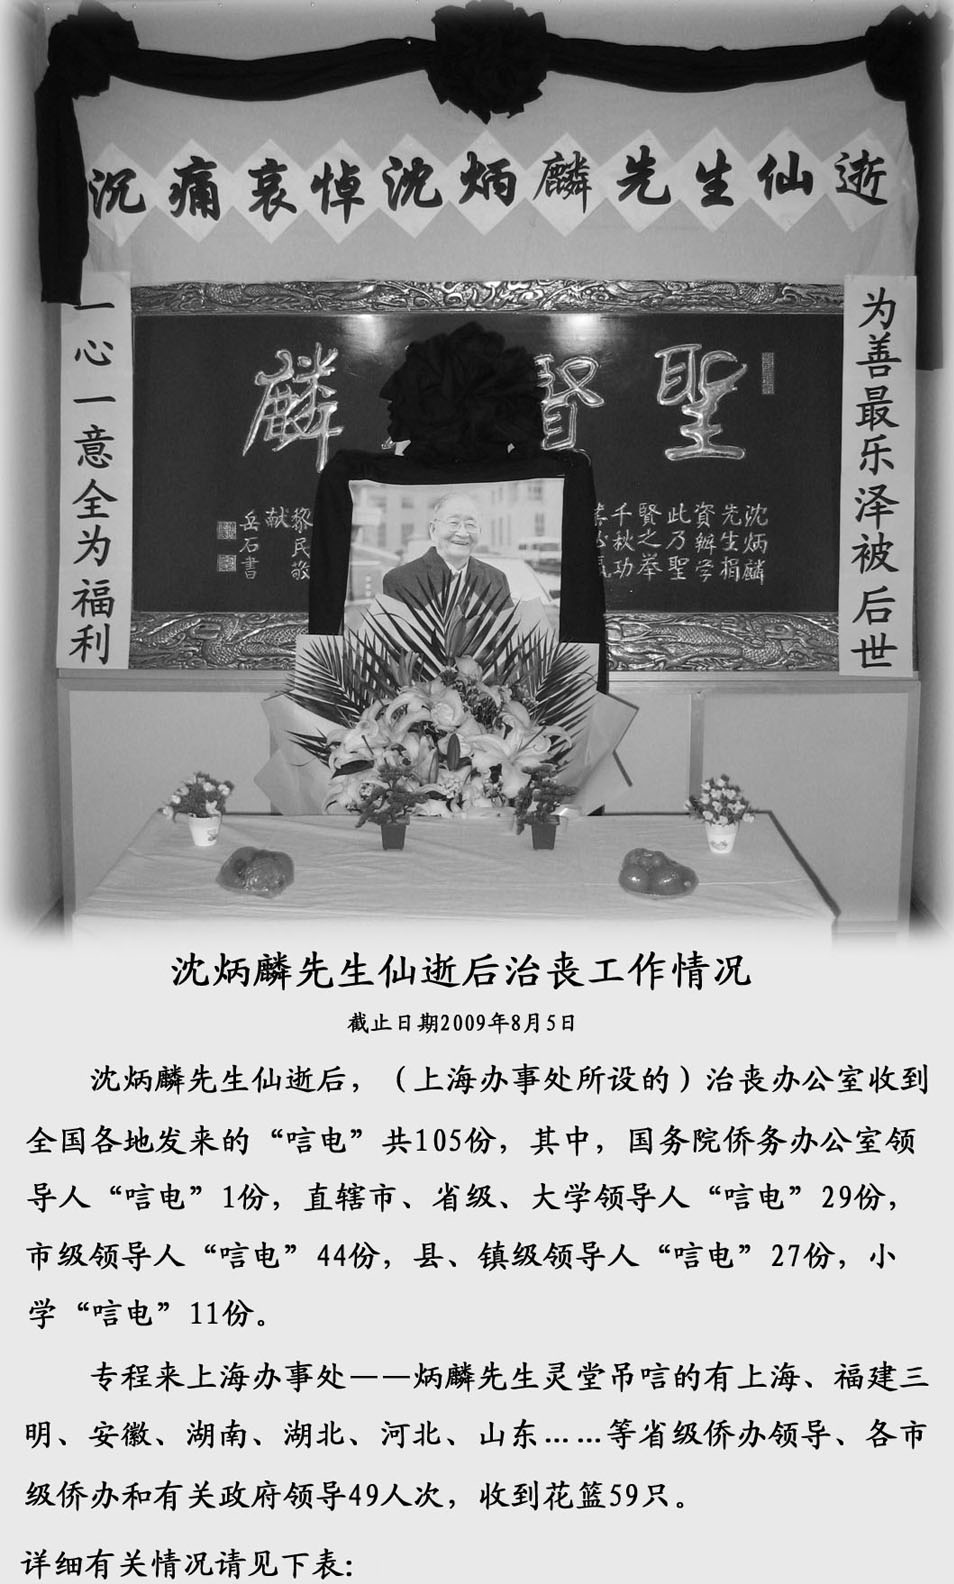 沉痛哀悼沈炳麟先生仙逝
为善最乐泽被后世
一心一意全为福利
聖賢麟
沈炳麟
先生捐
資辦学
此乃聖
賢之举
千秋功
黎民敬
献
岳石書
沈炳麟先生仙逝后治丧工作情况
截止日期2009年8月5日
沈炳麟先生仙逝后，（上海办事处所设的）治丧办公室收到
全国各地发来的“唁电”共105份，其中，国务院侨务办公室领
导人“唁电”1份，直辖市、省级、大学领导人“唁电”29份，
市级领导人“唁电”44份，县、镇级领导人“唁电”27份，小
学“唁电”11份。
专程来上海办事处——炳麟先生灵堂吊唁的有上海、福建三
明、安徽、湖南、湖北、河北、山东……等省级侨办领导、各市
级侨办和有关政府领导49人次，收到花篮59只。
详细有关情况请见下表：